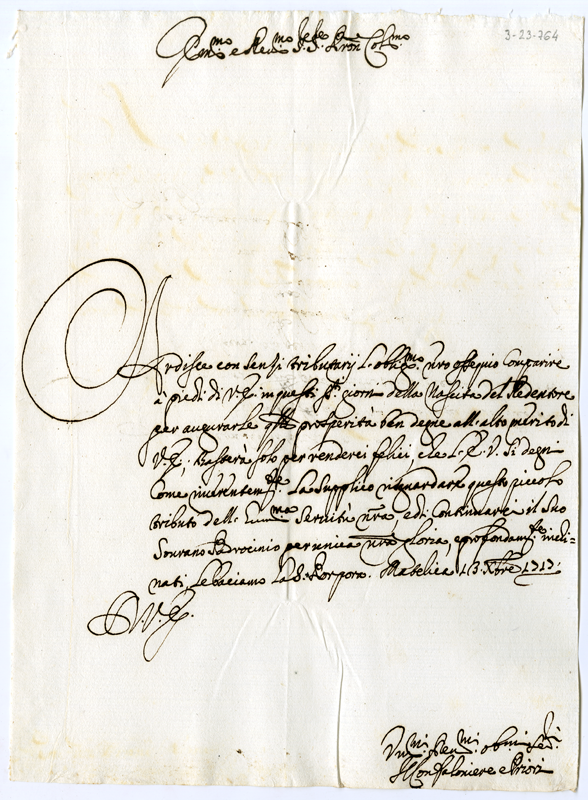 3-23-764
Em.mo e Rev.mo Sig.re Sig.re Pron Col.mo
Ardisce con sensi tributarij l'oblig.mo nro ossequio Comparire
a piedi di V.E. in questi S.ti giorni della Nascita del Redentore
per augurarle qlle prosperità ben degne all'alto merito di
V.E. Basterà solo per renderci felici, che L'E.V. Si degni
Come La Supplico risguardare questo piccolo
tributo dell' Servitù nra, e di Continuare il Suo
Sourano Patrocinio per unica nra gloria, e profondam.te incli-
nati Le baciamo La S. Porpora. Matelica 13 Xbre 1717.
D.V.E.
Vm.mi Deu.mi oblig.mi Ser.ri
Il Confaloniere e Priori